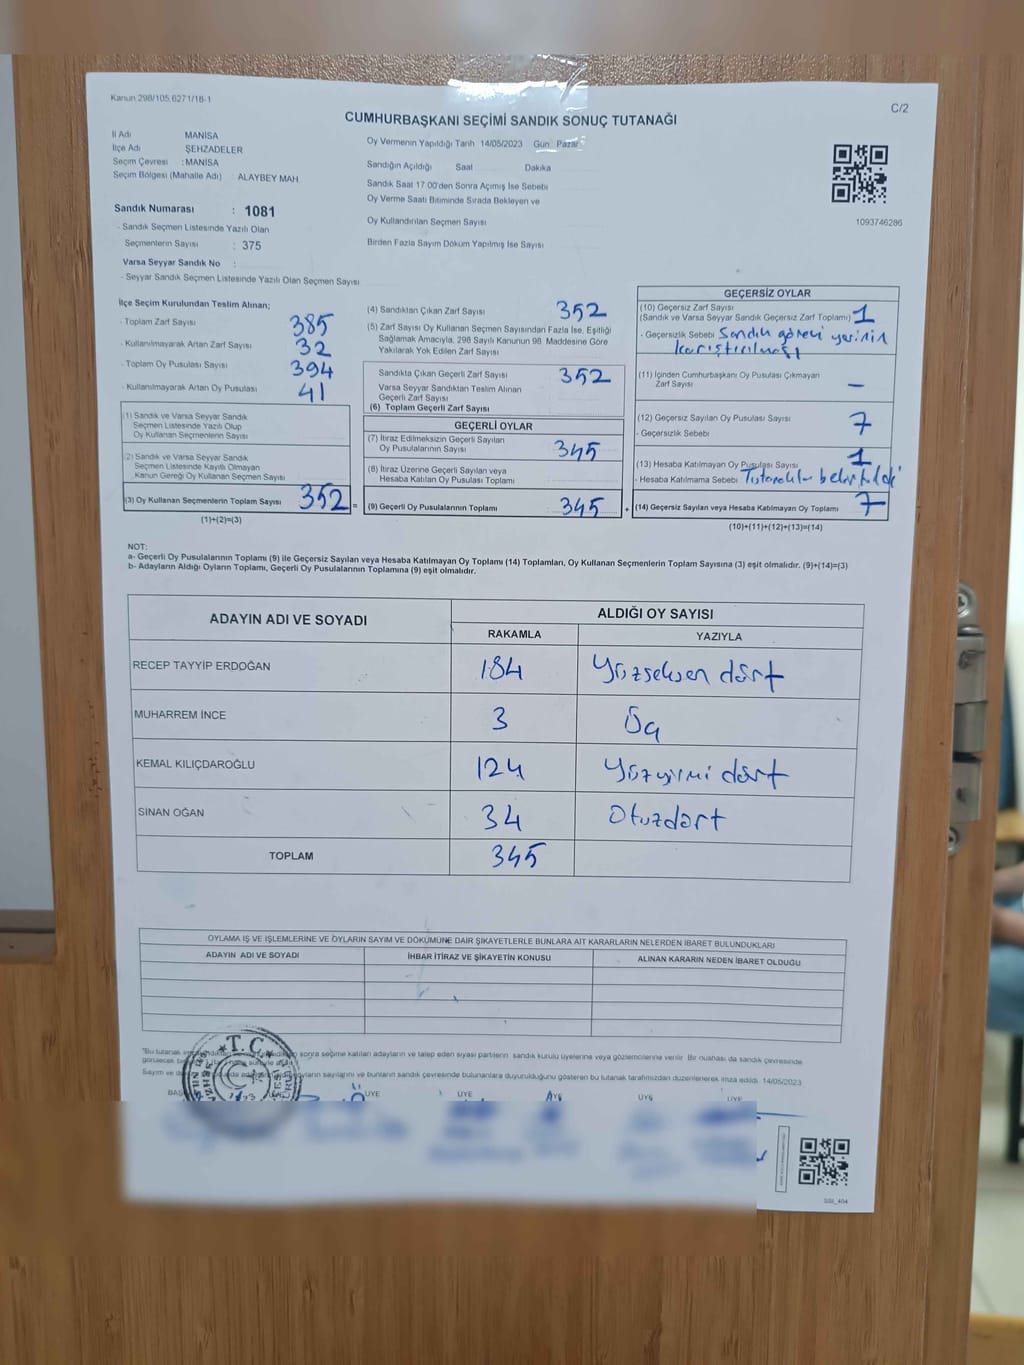 Kanun 298/105,6271/18-1
C/2
CUMHURBAŞKANI SEÇİMİ SANDIK SONUÇ TUTANAĞI
İl Adı MANİSA
İlçe Adı ŞEHZADELER
Seçim Çevresi : MANİSA
Seçim Bölgesi (Mahalle Adı) ALAYBEY MAH.
Sandık Numarası : 1081
- Sandık Seçmen Listesinde Yazılı Olan
Seçmenlerin Sayısı : 375
Varsa Seyyar Sandık No :
- Seyyar Sandık Seçmen Listesinde Yazılı Olan Seçmen Sayısı
Oy Vermenin Yapıldığı Tarih 14/05/2023 Gün Pazar
Sandığın Açıldığı Saat Dakika
Sandık Saat 17.00'den Sonra Açımış İse Sebebi
Oy Verme Saati Bitiminde Sırada Bekleyen ve
Oy Kullandırılan Seçmen Sayısı
Birden Fazla Sayım Döküm Yapılmış İse Sayısı
1093746286
İlçe Seçim Kurulundan Teslim Alınan;
- Toplam Zarf Sayısı 385
- Kullanılmayarak Artan Zarf Sayısı 32
- Toplam Oy Pusulası Sayısı 394
- Kullanılmayarak Artan Oy Pusulası 41
(1) Sandık ve Varsa Seyyar Sandık
Seçmen Listesinde Yazılı Olup
Oy Kullanan Seçmenlerin Sayısı
(2) Sandık ve Varsa Seyyar Sandık
Seçmen Listesinde Kayıtlı Olmayan
Kanun Gereği Oy Kullanan Seçmen Sayısı
(3) Oy Kullanan Seçmenlerin Toplam Sayısı 352 =
(1)+(2)=(3)
(4) Sandıktan Çıkan Zarf Sayısı 352
(5) Zarf Sayısı Oy Kullanan Seçmen Sayısından Fazla İse, Eşitliği
Sağlamak Amacıyla, 298 Sayılı Kanunun 98. Maddesine Göre
Yakılarak Yok Edilen Zarf Sayısı
Sandıkta Çıkan Geçerli Zarf Sayısı 352
Varsa Seyyar Sandıktan Teslim Alınan
Geçerli Zarf Sayısı
(6) Toplam Geçerli Zarf Sayısı
GEÇERLİ OYLAR
(7) İtiraz Edilmeksizin Geçerli Sayılan
Oy Pusulalarının Sayısı 345
(8) İtiraz Üzerine Geçerli Sayılan veya
Hesaba Katılan Oy Pusulası Toplamı
(9) Geçerli Oy Pusulalarının Toplamı 345 +
GEÇERSİZ OYLAR
(10) Geçersiz Zarf Sayısı
(Sandık ve Varsa Seyyar Sandık Geçersiz Zarf Toplamı) 1
- Geçersizlik Sebebi Sandık görevi yerinin
karıştırılması
(11) İçinden Cumhurbaşkanı Oy Pusulası Çıkmayan
Zarf Sayısı –
(12) Geçersiz Sayılan Oy Pusulası Sayısı 7
- Geçersizlik Sebebi
(13) Hesaba Katılmayan Oy Pusulası Sayısı 1
- Hesaba Katılmama Sebebi belirtildi
(14) Geçersiz Sayılan veya Hesaba Katılmayan Oy Toplamı 7
(10)+(11)+(12)+(13)=(14)
NOT:
a- Geçerli Oy Pusulalarının Toplamı (9) ile Geçersiz Sayılan veya Hesaba Katılmayan Oy Toplamı (14) Toplamları, Oy Kullanan Seçmenlerin Toplam Sayısına (3) eşit olmalıdır. (9)+(14)=(3)
b- Adayların Aldığı Oyların Toplamı, Geçerli Oy Pusulalarının Toplamına (9) eşit olmalıdır.
ADAYIN ADI VE SOYADI ALDIĞI OY SAYISI
RAKAMLA YAZIYLA
RECEP TAYYİP ERDOĞAN 184 Yüzseksen dört
MUHARREM İNCE 3 Üç
KEMAL KILIÇDAROĞLU 124 Yüzyirmi dört
SİNAN OĞAN 34 Otuzdört
TOPLAM 345
OYLAMA İŞ VE İŞLEMLERİNE VE OYLARIN SAYIM VE DÖKÜMÜNE DAİR ŞİKAYETLERLE BUNLARA AİT KARARLARIN NELERDEN İBARET BULUNDUKLARI
ADAYIN ADI VE SOYADI İHBAR İTİRAZ VE ŞİKAYETİN KONUSU ALINAN KARARIN NEDEN İBARET OLDUĞU
"Bu tutanak sonra seçime katılan adayların ve talep eden siyasi partilerin sandık kurulu üyelerine veya gözlemcilerine verilir. Bir nüshası da sandık çevresinde
görülecek
Sayım ve oyların sayılarını ve bunların sandık çevresinde bulunanlara duyurulduğunu gösteren bu tutanak tarafımızdan düzenlenerek imza edildi. 14/05/2023
T.C.
ÜYE ÜYE ÜYE ÜYE